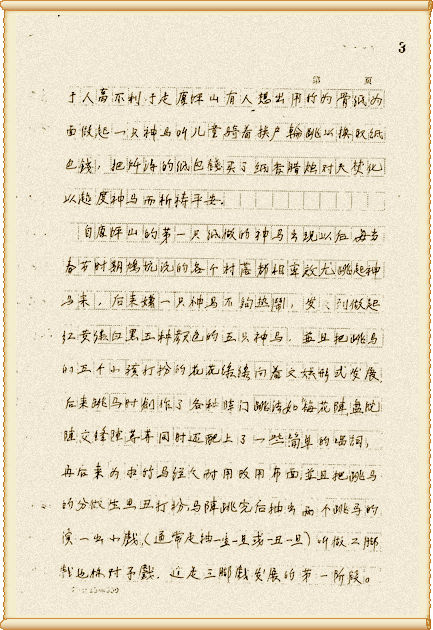 3
第 页
于人高不利于走原坪山有人想出用竹为骨纸为
面做起一只神马叫儿童骑着挨户轮跳以换取纸
包钱,把所得的纸包钱买了纸香腊烛对天焚化
以超度神马而祈祷平安。
自原坪山的第一只纸做的神马出现以后每当
春节时期鸠坑沆的各个村落都相率效尤跳起神
马来,后来嫌一只神马不够热闹,发 到做起
红黄绿白黑五种颜色的五只神马,并且把跳马
的五个小孩打扮的花花绿绿向着文娱形式发展
后来跳马时创作了各种阵门跳法如梅花阵盘陀
阵交缝阵等等同时还配上了一些简单的唱词;
再后来为求竹马经久耐用改用布面并且把跳马
的分做生旦丑打扮马阵跳完后抽出两个跳马的
演一出小戏,(通常是抽一生一旦或一丑一旦)叫做二脚
戏也称对子戏,这是三脚戏发展的第一阶段。